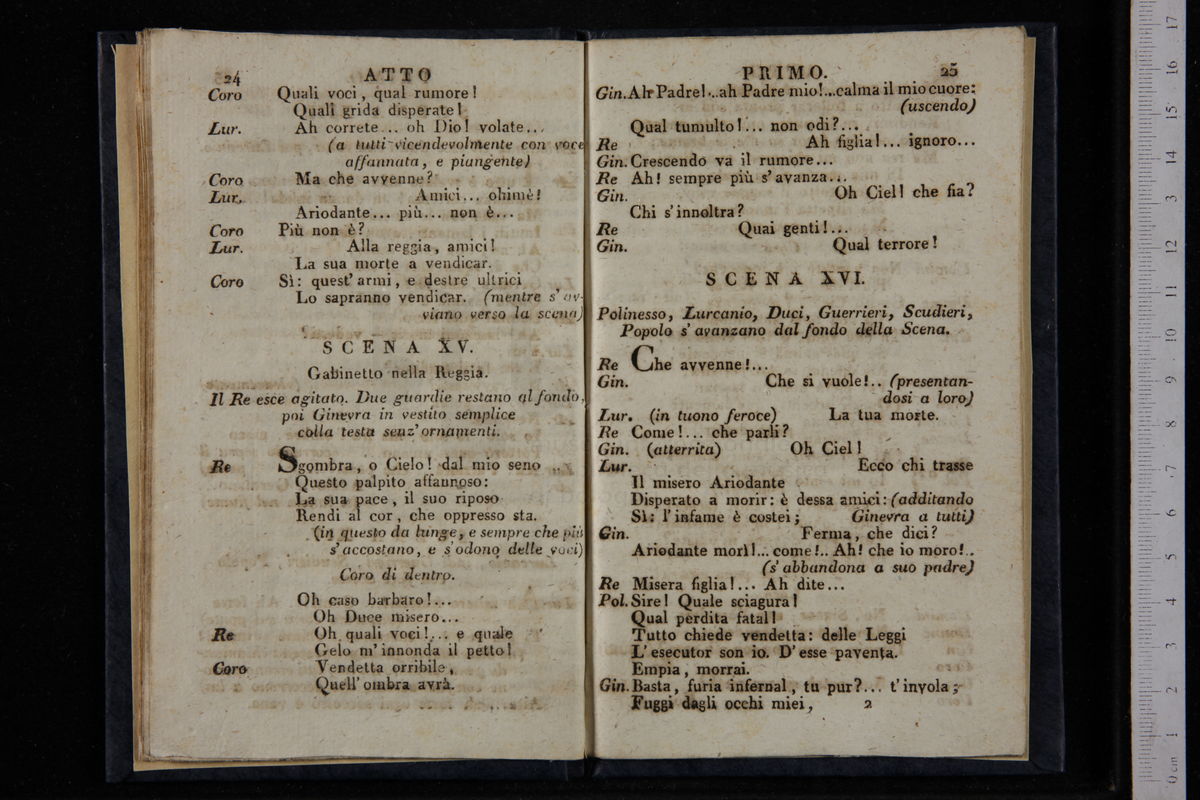 24 ATTO
Coro Quali voci, qual rumore!
Quali grida disperate!
Lur. Ah correte... oh Dio! volate...
(a tutti vicendevolmente con voce
affannata, e piangente)
Coro Ma che avvenne?
Lur. Amici... ohimè!
Ariodante... più... non è...
Coro Più non è?
Lur. Alla reggia, amici!
La sua morte a vendicar.
Coro Sì: quest' armi, e destre ultrici
Lo sapranno vendicar. (mentre s' av-
viano verso la scena)
SCENA XV.
Gabinetto nella Reggia.
Il Re esce agitato. Due guardie restano al fondo,
poi Ginevra in vestito semplice
colla testa senz' ornamenti.
Re Sgombra, o Cielo! dal mio seno
Questo palpito affannoso:
La sua pace, il suo riposo
Rendi al cor, che oppresso sta.
(in questo da lunge, e sempre che più
s' accostano, e s' odono delle voci)
Coro di dentro.
Oh caso barbaro!...
Oh Duce misero...
Re Oh quali voci!... e quale
Gelo m' innonda il petto!
Coro Vendetta orribile,
Quell' ombra avrà.
PRIMO. 25
Gin. Ah Padre!...ah Padre mio!...calma il mio cuore:
(uscendo)
Qual tumulto!... non odi?...
Re Ah figlia!... ignoro...
Gin. Crescendo va il rumore...
Re Ah! sempre più s' avanza...
Gin. Oh Ciel! che fia?
Chi s' innoltra?
Re Quai genti!...
Gin. Qual terrore!
SCENA XVI.
Polinesso, Lurcanio, Duci, Guerrieri, Scudieri,
Popolo s' avanzano dal fondo della Scena.
Re Che avvenne!...
Gin. Che si vuole!.. (presentan-
dosi a loro)
Lur. (in tuono feroce) La tua morte.
Re Come!... che parli?
Gin. (atterrita) Oh Ciel!
Lur. Ecco chi trasse
Il misero Ariodante
Disperato a morir: è dessa amici: (additando
Sì: l' infame è costei; Ginevra a tutti)
Gin. Ferma, che dici?
Ariodante morì!... come!.. Ah! che io moro!..
(s' abbandona a suo padre)
Re Misera figlia!... Ah dite...
Pol. Sire! Quale sciagura!
Qual perdita fatal!
Tutto chiede vendetta: delle Leggi
L' esecutor son io. D' esse paventa.
Empia, morrai.
Gin. Basta, furia infernal, tu pur?... t' invola;
Fuggi dagli occhi miei, 2
0 cm 1 2 3 4 5 6 7 8 9 10 11 12 13 14 15 16 17